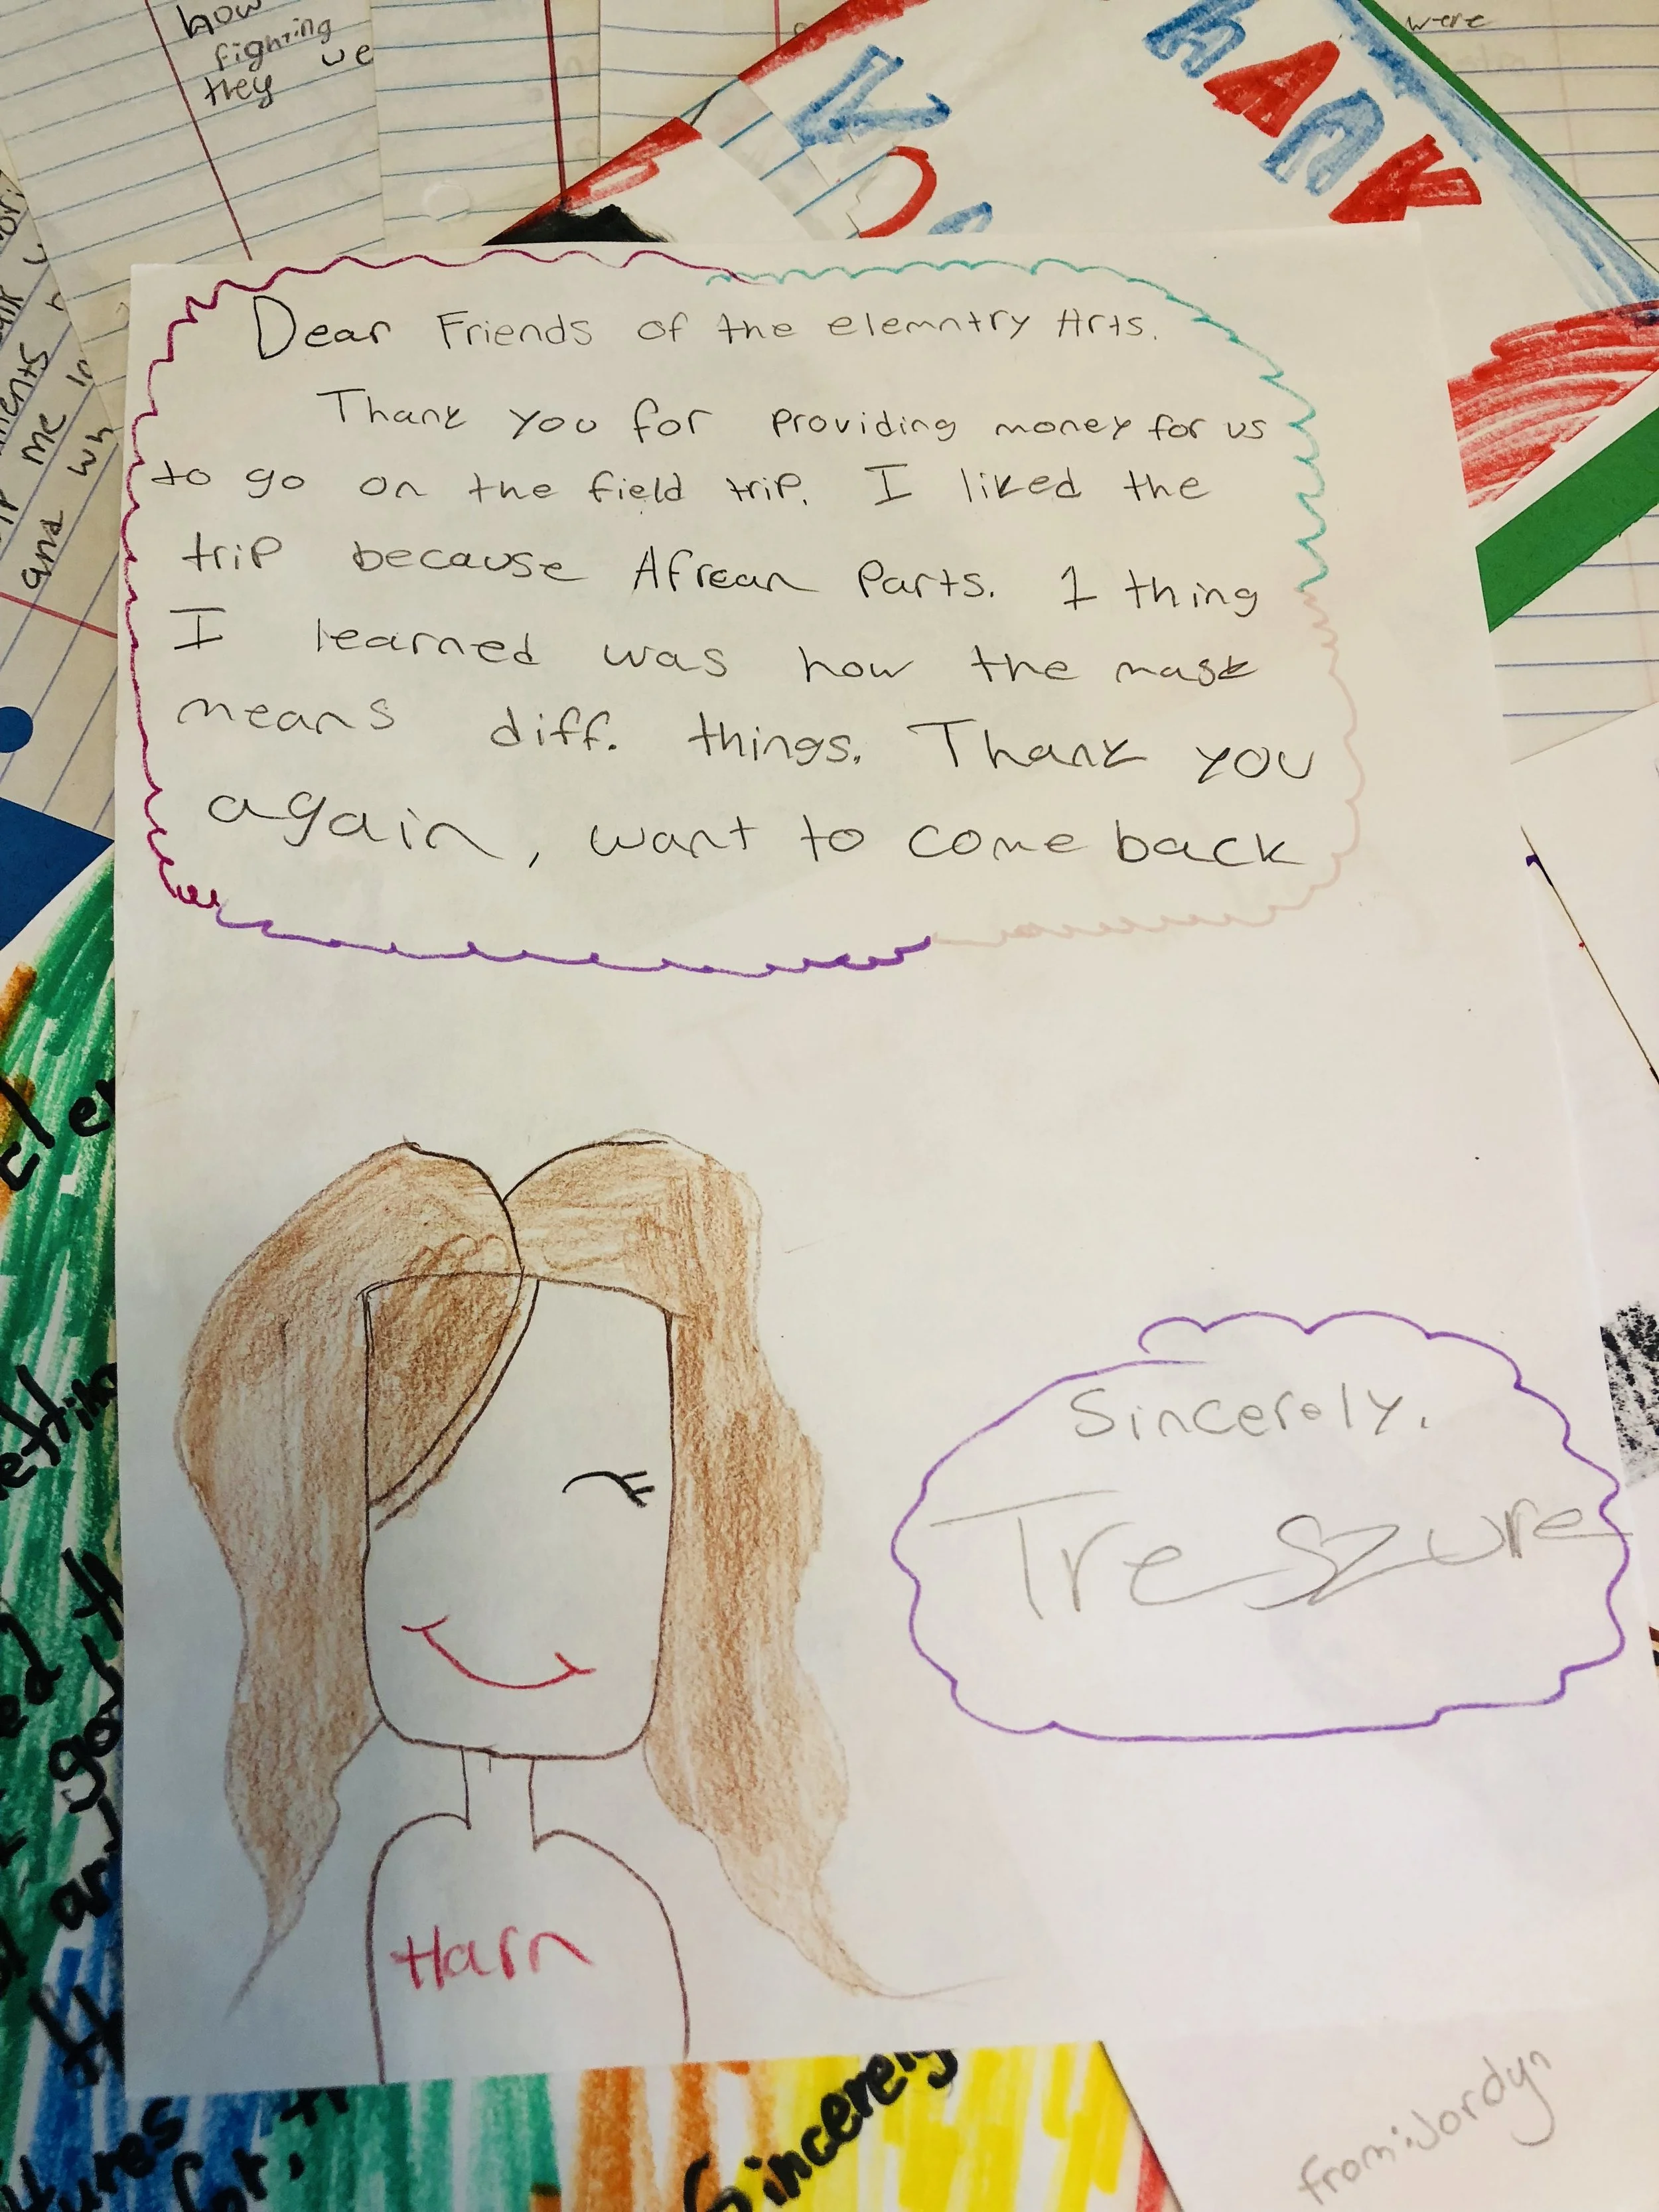 how
fighting
they we
were
THANK
YOU
and
me in
and wh
Dear Friends of the elemntry Arts.
Thank you for providing money for us
to go on the field trip. I liked the
trip because Afrean Parts. 1 thing
I learned was how the mask
means diff. things. Thank you
again, want to come back
Sincerely.
Treszure
Harn
Sincerely
for
from: Jordyn